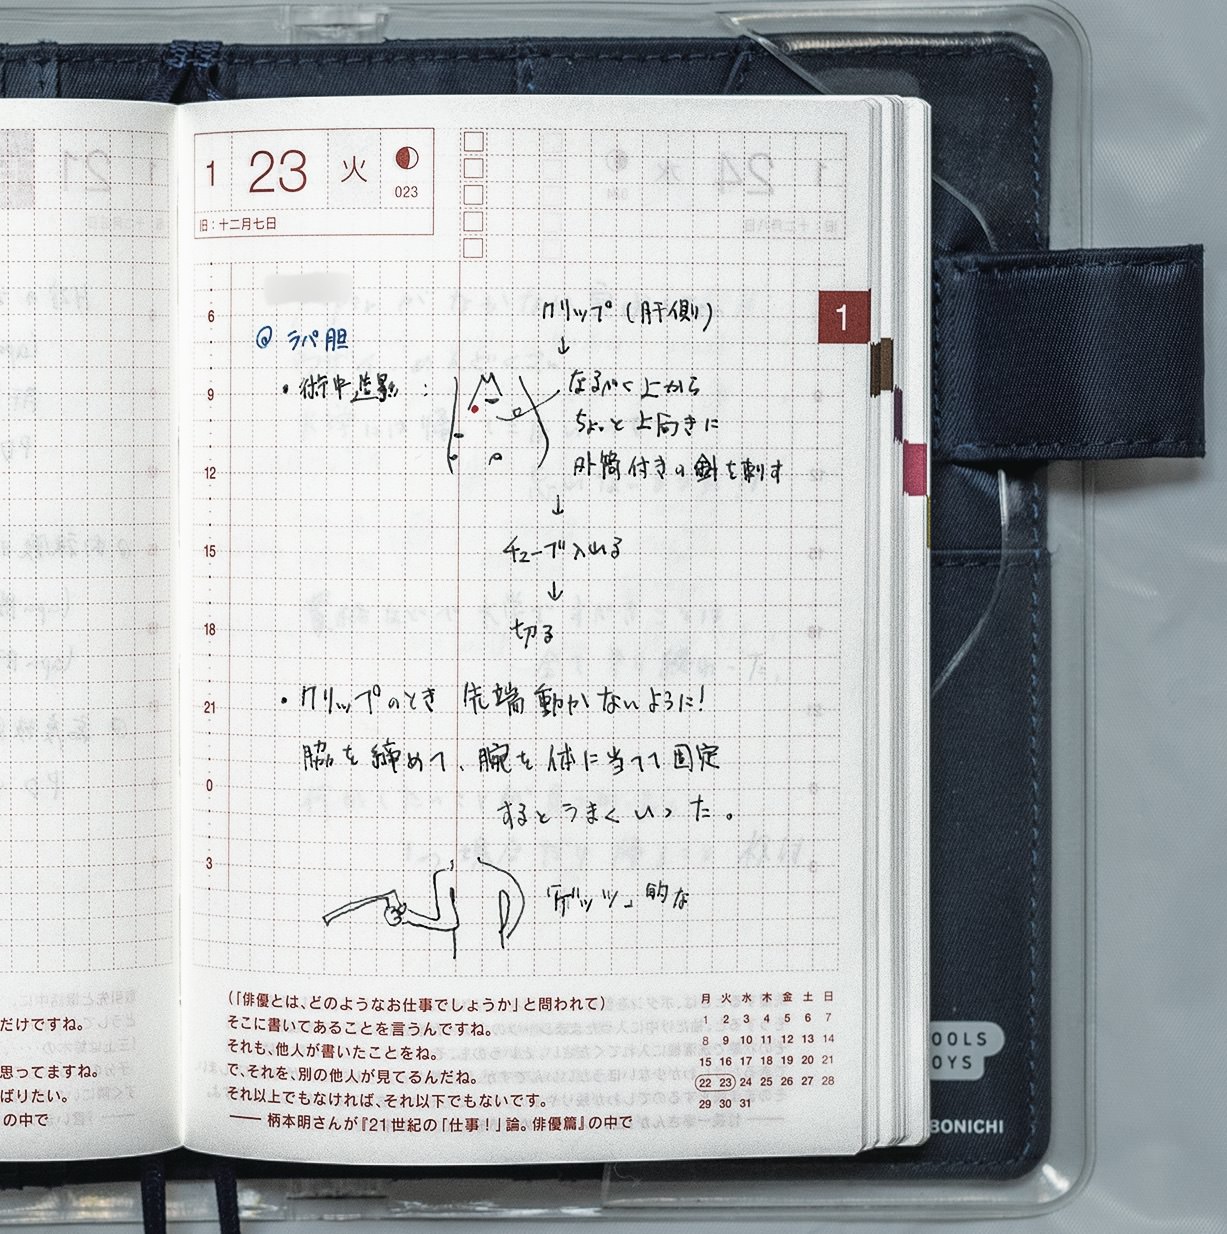 1 23 火
023
旧：十二月七日
クリップ (肝側)
6
@ ラパ胆
↓
・術中造影：
なるべく上から
9
ちょっと上向きに
12
外筒付きの針を刺す
↓
15
チューブ入れる
↓
18
切る
21
・クリップのとき 先端動かないように!
脇を締めて、腕を体に当てて固定
0
するとうまくいった。
3
「ゲッツ」的な
1
(「俳優とは、どのようなお仕事でしょうか」と問われて)
そこに書いてあることを言うんですね。
それも、他人が書いたことをね。
で、それを、別の他人が見てるんだね。
それ以上でもなければ、それ以下でもないです。
―― 柄本明さんが『21世紀の「仕事！」論。俳優篇』の中で
月 火 水 木 金 土 日
1 2 3 4 5 6 7
8 9 10 11 12 13 14
15 16 17 18 19 20 21
22 23 24 25 26 27 28
29 30 31
だけですね。
思ってますね。
ばりたい。
の中で
OOLS
OYS
BONICHI